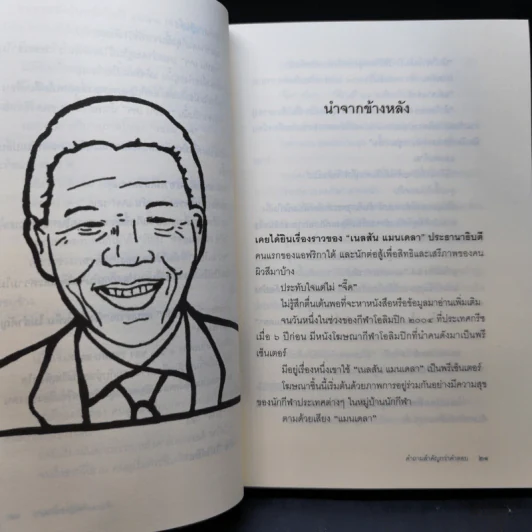 นำจากข้างหลัง
เคยได้ยินเรื่องราวของ “เนลสัน แมนเดลา” ประธานาธิบดี
คนแรกของแอฟริกาใต้ และนักต่อสู้เพื่อสิทธิและเสรีภาพของคน
ผิวสีมาบ้าง
ประทับใจแต่ไม่ “จี๊ด”
ไม่รู้สึกตื่นเต้นพอที่จะหาหนังสือหรือข้อมูลมาอ่านเพิ่มเติม
จนวันหนึ่งในช่วงของกีฬาโอลิมปิก ๒๐๐๔ ที่ประเทศกรีซ
เมื่อ ๖ ปีก่อน มีหนังโฆษณากีฬาโอลิมปิกที่นำคนดังมาเป็นพรี
เซ็นเตอร์
มีอยู่เรื่องหนึ่งเขาใช้ “เนลสัน แมนเดลา” เป็นพรีเซ็นเตอร์
โฆษณาชิ้นนี้เริ่มต้นด้วยภาพการอยู่ร่วมกันอย่างมีความสุข
ของนักกีฬาประเทศต่างๆ ในหมู่บ้านนักกีฬา
ตามด้วยเสียง “แมนเดลา”
คำถามสำคัญกว่าคำตอบ ๒๑